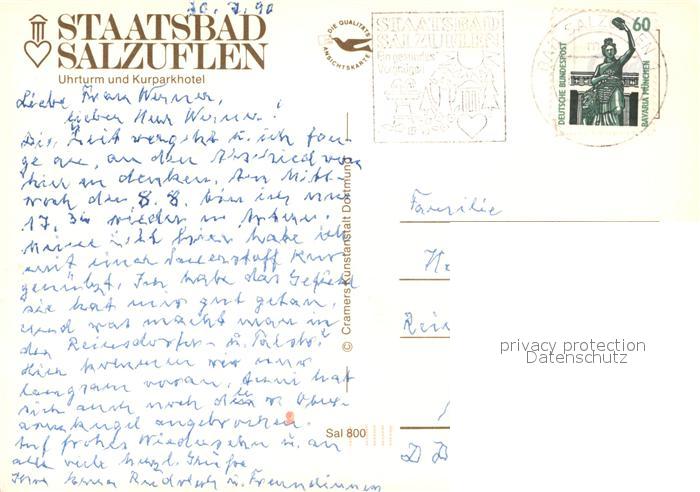 30.7.90
STAATSBAD
SALZUFLEN
Uhrturm und Kurparkhotel
DIE QUALITÄTS
ANSICHTSKARTE
STAATSBAD
SALZUFLEN
BAD SALZUFLEN
60
DEUTSCHE BUNDESPOST
BAVARIA MÜNCHEN
Liebe Frau Werner,
lieber Herr Werner.
Die Zeit vergeht u. ich fan-
ge an, an den Abschied von
hier zu denken. Am Mitt-
woch den 8.8. bin ich um
17. wieder in
Meine Zeit hier habe ich
mit einer Sauerstoff Kur
genützt. Ich habe das Gefühl
sie hat mir gut getan.
Und was macht man in
der Reinsdorfer- u.
Hier kommen wir nur
langsam voran, hat
sich auch noch die r. Ober-
angebrochen.
Auf frohes Wiedersehn u. an
alle viele herzl. Grüße
Ihre Rudolph u. Freundinnen
© Cramers Kunstanstalt Dortmund
Sal 800
Familie
D
privacy protection
Datenschutz